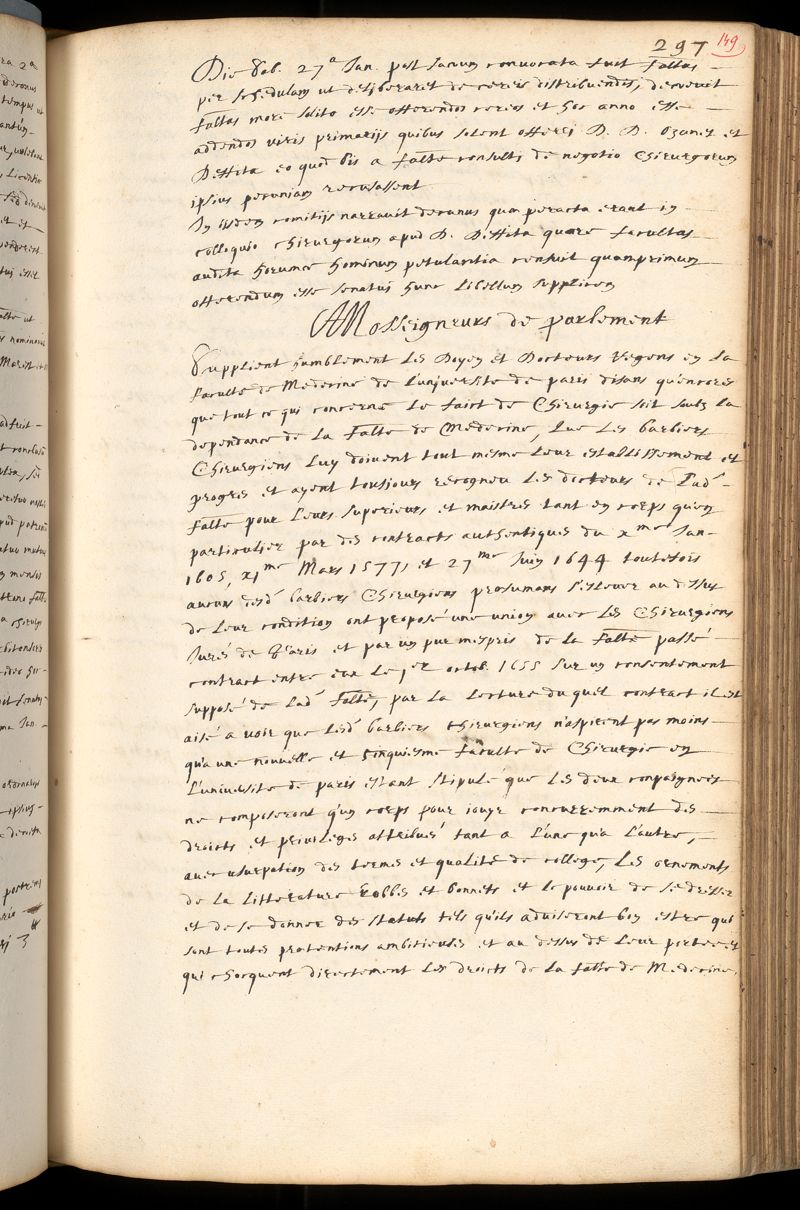 297 149
Die Sab. 27ª Jan. post sacrum convocata fuit Faltas
per schedulam ut deliberaret de cereis distribuendis, decrevit
Faltas more solito esse offerendos cereos et hoc anno esse
addendos viris primarijs quibus solent offerri D. D. Ozanet et
Deffita eo quod bis a Falte consulti de negotio Chirurgorum
ipsius pecuniam recusassent
In ijsdem comitijs narravit decanus quae peracta erant in
colloquio chirurgorum apud D. Deffita quare facultas
audita horumce hominum petulantia censuit quamprimum
offerendum esse senatui hunc libellum supplicem
A Mosseigneurs de parlement
Supplient humblement les Doyen et Docteurs Regens en la
faculté de Medecine de l'université de paris disans qu'encores
que tout ce qui concerne le faict de Chirurgie soit soubz la
dependance de la Falté de Medecine, que les barbiers
Chirurgiens luy doivent tout mesme leur establissement et
progres et ayent tousjours recogneu les docteurs de lad.
Falté pour leurs superieurs et maistres tant en corps qu'en
particulier par des contracts authentiques du x.me Jan-
1605, xj.me Mars 1577, et 27.me Juin 1644 toutefois
aucuns desd. barbiers Chirurgiens presumans s'eslever au dessus
de leur condition ont proposé une union avec les Chirurgiens
Jurés de Paris et par un pur mespris de la Falté passé
contract entre eux le 1.er octob. 1655 sur un consentement
supposé de lad. Falté, par la lecture duquel contract il est
aisé a voir que lesd. barbiers chirurgiens n'aspirent pas moins
qu'a une nouvelle et cinquiesme faculté de Chirurgie en
l'université de paris estant stipulé que les deux compagnees
ne composeront q'un corps pour iouyr concurremment des
droicts et privileges attribués tant a l'une qu'a l'autre,
avec usurpation des termes et qualité de college, les ornements
de la litterature Robbes et bonnets et le pouvoir de se dresser
et de se donner des statuts tels quils adviseront bon estre qui
sont toutes pretentions ambitieuses et au dessus de leur portee et
qui choquent directement les droicts de la falté de Medecine,